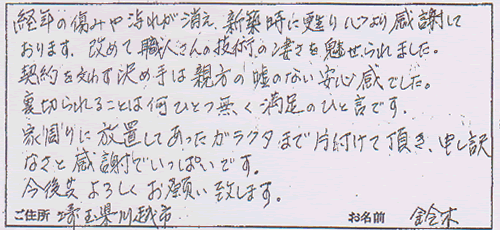 経年の傷みや汚れが消え、新築時に甦り心より感謝して
おります。改めて職人さんの技術の凄さを魅せられました。
契約を交わす決め手は親方の嘘のない安心感でした。
裏切られることは何ひとつ無く満足のひと言です。
家周りに放置してあったガラクタまで片付けて頂き、申し訳
なさと感謝でいっぱいです。
今後共よろしくお願い致します。
ご住所 埼玉県川越市 お名前 鈴木